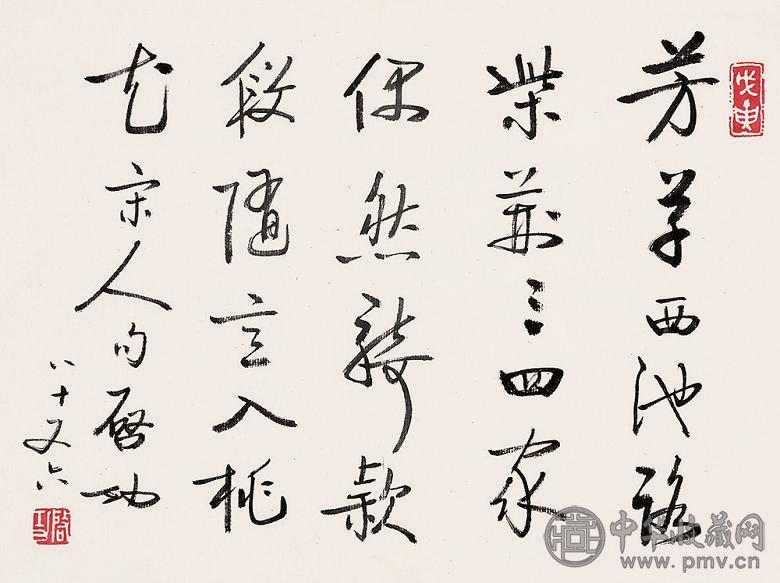 戊寅
芳草西池路
柴荊三四家
偶然騎款
段隨意入桃
花宋人句啓功
八十又六
啓功
中华收藏网
www.pmv.cn